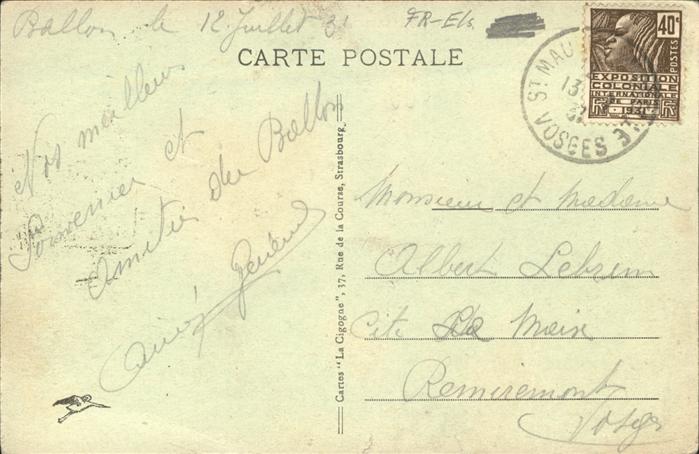 Ballon le 12 Juillet 31
FR-Els
CARTE POSTALE
40c
POSTES
EXPOSITION
COLONIALE
INTERNATIONALE
DE PARIS
1931
RF RF
ST MAU
13
VOSGES
Nos meilleurs
Souvenirs et
amitiés du Ballon
Cartes "La Cigogne", 37, Rue de la Course, Strasbourg
Monsieur et Madame
Albert Lebrun
Cité
Remiremont
Vosges